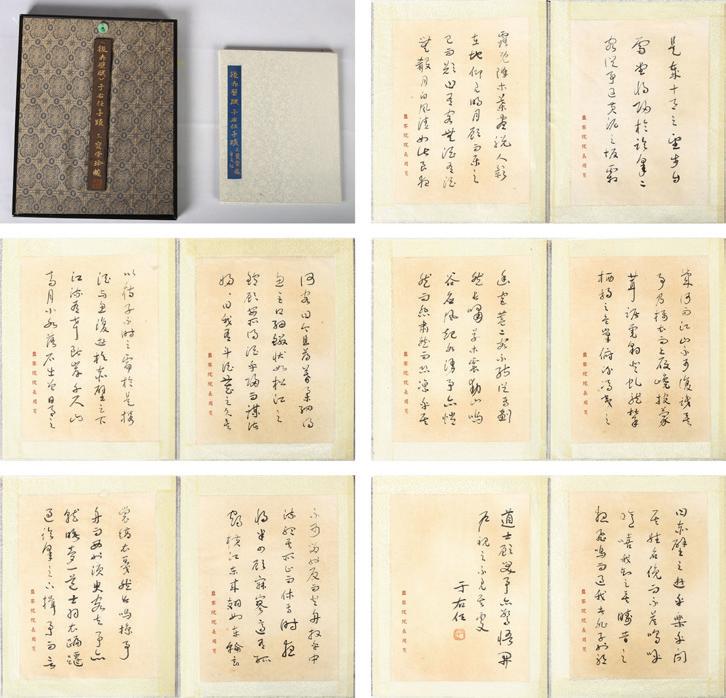 後赤壁賦 于右任手蹟
後赤壁賦 于右任手蹟
是歲十月之望步自
雪堂將歸於臨皋二
客從予過黃泥之坂霜
監察院院長用箋
露既降木葉盡脫人影
在地仰見明月顧而樂之
已而歎曰有客無酒有酒
無殽月白風清如此良夜
監察院院長用箋
何客曰今者薄暮舉網得
魚巨口細鱗狀如松江之
鱸顧安所得酒乎歸而謀諸
婦婦曰我有斗酒藏之久矣
監察院院長用箋
以待子不時之需於是攜
酒與魚復遊於赤壁之下
江流有聲斷岸千尺山
高月小水落石出曾日月之
監察院院長用箋
幾何而江山不可復識矣
予乃攝衣而上履巉巖披蒙
茸踞虎豹登虬龍攀
栖鶻之危巢俯馮夷之
監察院院長用箋
幽宮蓋二客不能從焉劃
然長嘯草木震動山鳴
谷應風起水湧予亦悄
然而悲肅然而恐凜乎其
監察院院長用箋
不可留也反而登舟放乎中
流聽其所止而休焉時夜
將半四顧寂寥適有孤
鶴橫江東來翅如車輪玄
監察院院長用箋
裳縞衣戛然長鳴掠予
舟而西也須臾客去予亦
就睡夢一道士羽衣蹁躚
過臨皋之下揖予而言
監察院院長用箋
曰赤壁之遊樂乎問
其姓名俛而不答嗚呼
噫嘻我知之矣疇昔之
夜飛鳴而過我者非子也耶
監察院院長用箋
道士顧笑予亦驚悟開
戶視之不見其處
于右任
監察院院長用箋